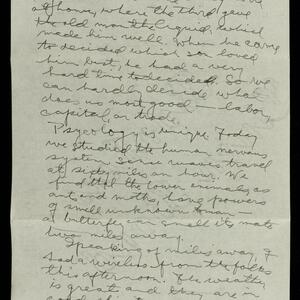 at home, where the third gave
the old man the liquid, which
made him well. When he came
to decided which son loved
him best, he had a very
hard time to decide. So we
can hardly decide what
does us most good — labor,
capital, or trade.
Psycology is unique. Today
we studied the human nervous
system. Sense waves travel
at sixty miles an hour. We
find that the lower animals, as
ants and moths, have powers
of smell unknown to man —
a butterfly can smell its mate
two miles away.
Speaking of miles away, I
had a wireless from the folks
this afternoon. The weather
is great and they are in